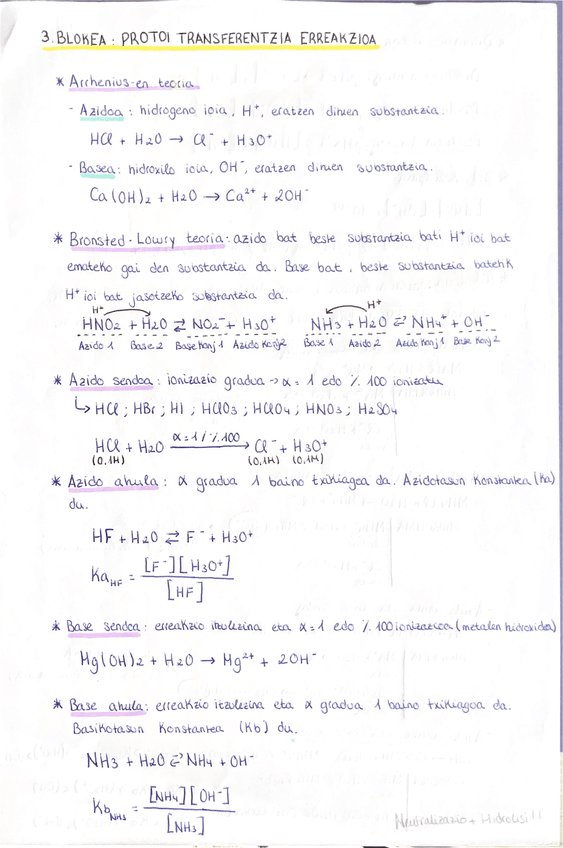 3. BLOKEA : PROTOI TRANSFERENTZIA ERREAKZIOA
* Arrhenius-en teoria
- Azidoa : hidrogeno ioia, H⁺, eratzen dituen substantzia.
HCl + H2O → Cl⁻ + H3O⁺
- Basea : hidroxilo ioia, OH⁻, eratzen dituen substantzia.
Ca(OH)2 + H2O → Ca²⁺ + 2OH⁻
* Bronsted-Lowry teoria : azido bat beste substantzia bati H⁺ ioi bat
emateko gai den substantzia da. Base bat, beste substantzia batetik
H⁺ ioi bat jasotzeko substantzia da.
H⁺ H⁺
HNO2 + H2O ⇄ NO2⁻ + H3O⁺ NH3 + H2O ⇄ NH4⁺ + OH⁻
Azido 1 Base 2 Base Konj 1 Azido Konj 2 Base 1 Azido 2 Azido Konj 1 Base Konj 2
* Azido sendoa : ionizazio gradua → α = 1 edo % 100 ionizatu
↳ HCl ; HBr ; HI ; HClO3 ; HClO4 ; HNO3 ; H2SO4
α = 1 / % 100
HCl + H2O → Cl⁻ + H3O⁺
(0,1M) (0,1M) (0,1M)
* Azido ahula : α gradua 1 baino txikiagoa da. Azidotasun Konstantea (Ka)
du.
HF + H2O ⇄ F⁻ + H3O⁺
Ka HF = [F⁻][H3O⁺]
[HF]
* Base sendoa : erreakzio itzulezina eta α = 1 edo % 100 ionizatzea (metalen hidroxidoa)
Mg(OH)2 + H2O → Mg²⁺ + 2OH⁻
* Base ahula : erreakzio itzulezina eta α gradua 1 baino txikiagoa da.
Basikotasun Konstantea (Kb) du.
NH3 + H2O ⇄ NH4 + OH⁻
Kb NH3 = [NH4][OH⁻]
[NH3]
Neutralizazio + Hidrolisi !!